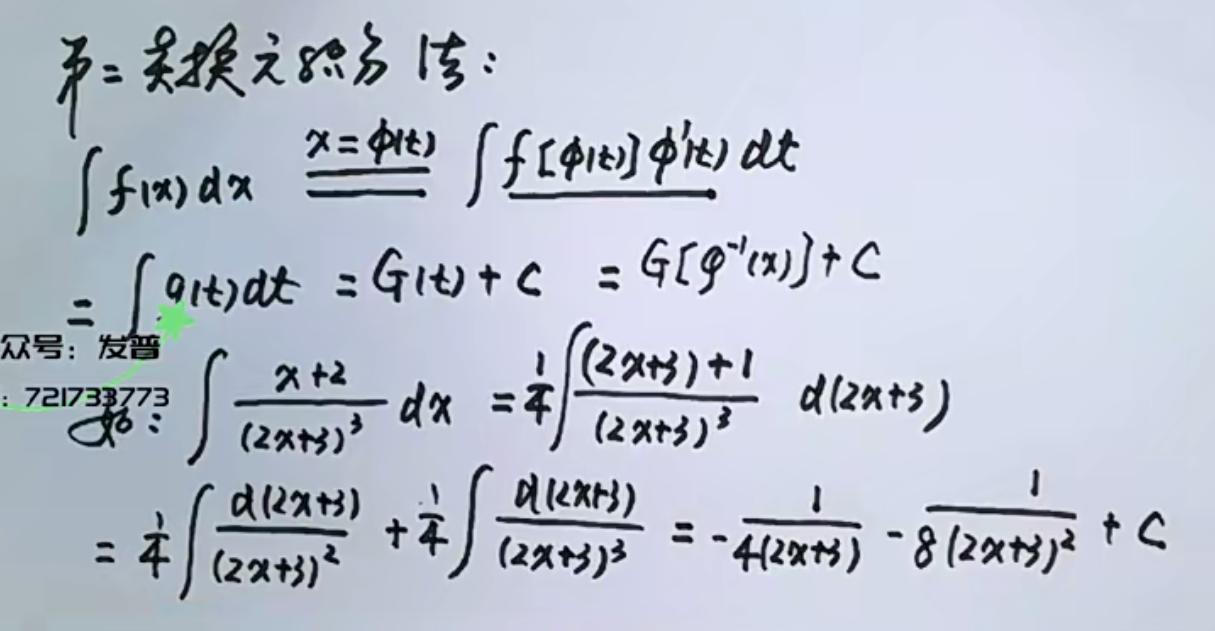 第二类换元积分法:
∫ f(x) dx  x=φ(t)  ∫ f[φ(t)] φ'(t) dt
= ∫ g(t) dt = G(t) + C = G[φ⁻¹(x)] + C
众号：发普
: 721733773
如: ∫ (x+2)/(2x+3)³ dx = 1/4 ∫ ((2x+3)+1)/(2x+3)³ d(2x+3)
= 1/4 ∫ d(2x+3)/(2x+3)² + 1/4 ∫ d(2x+3)/(2x+3)³ = - 1/4(2x+3) - 1/8(2x+3)² + C